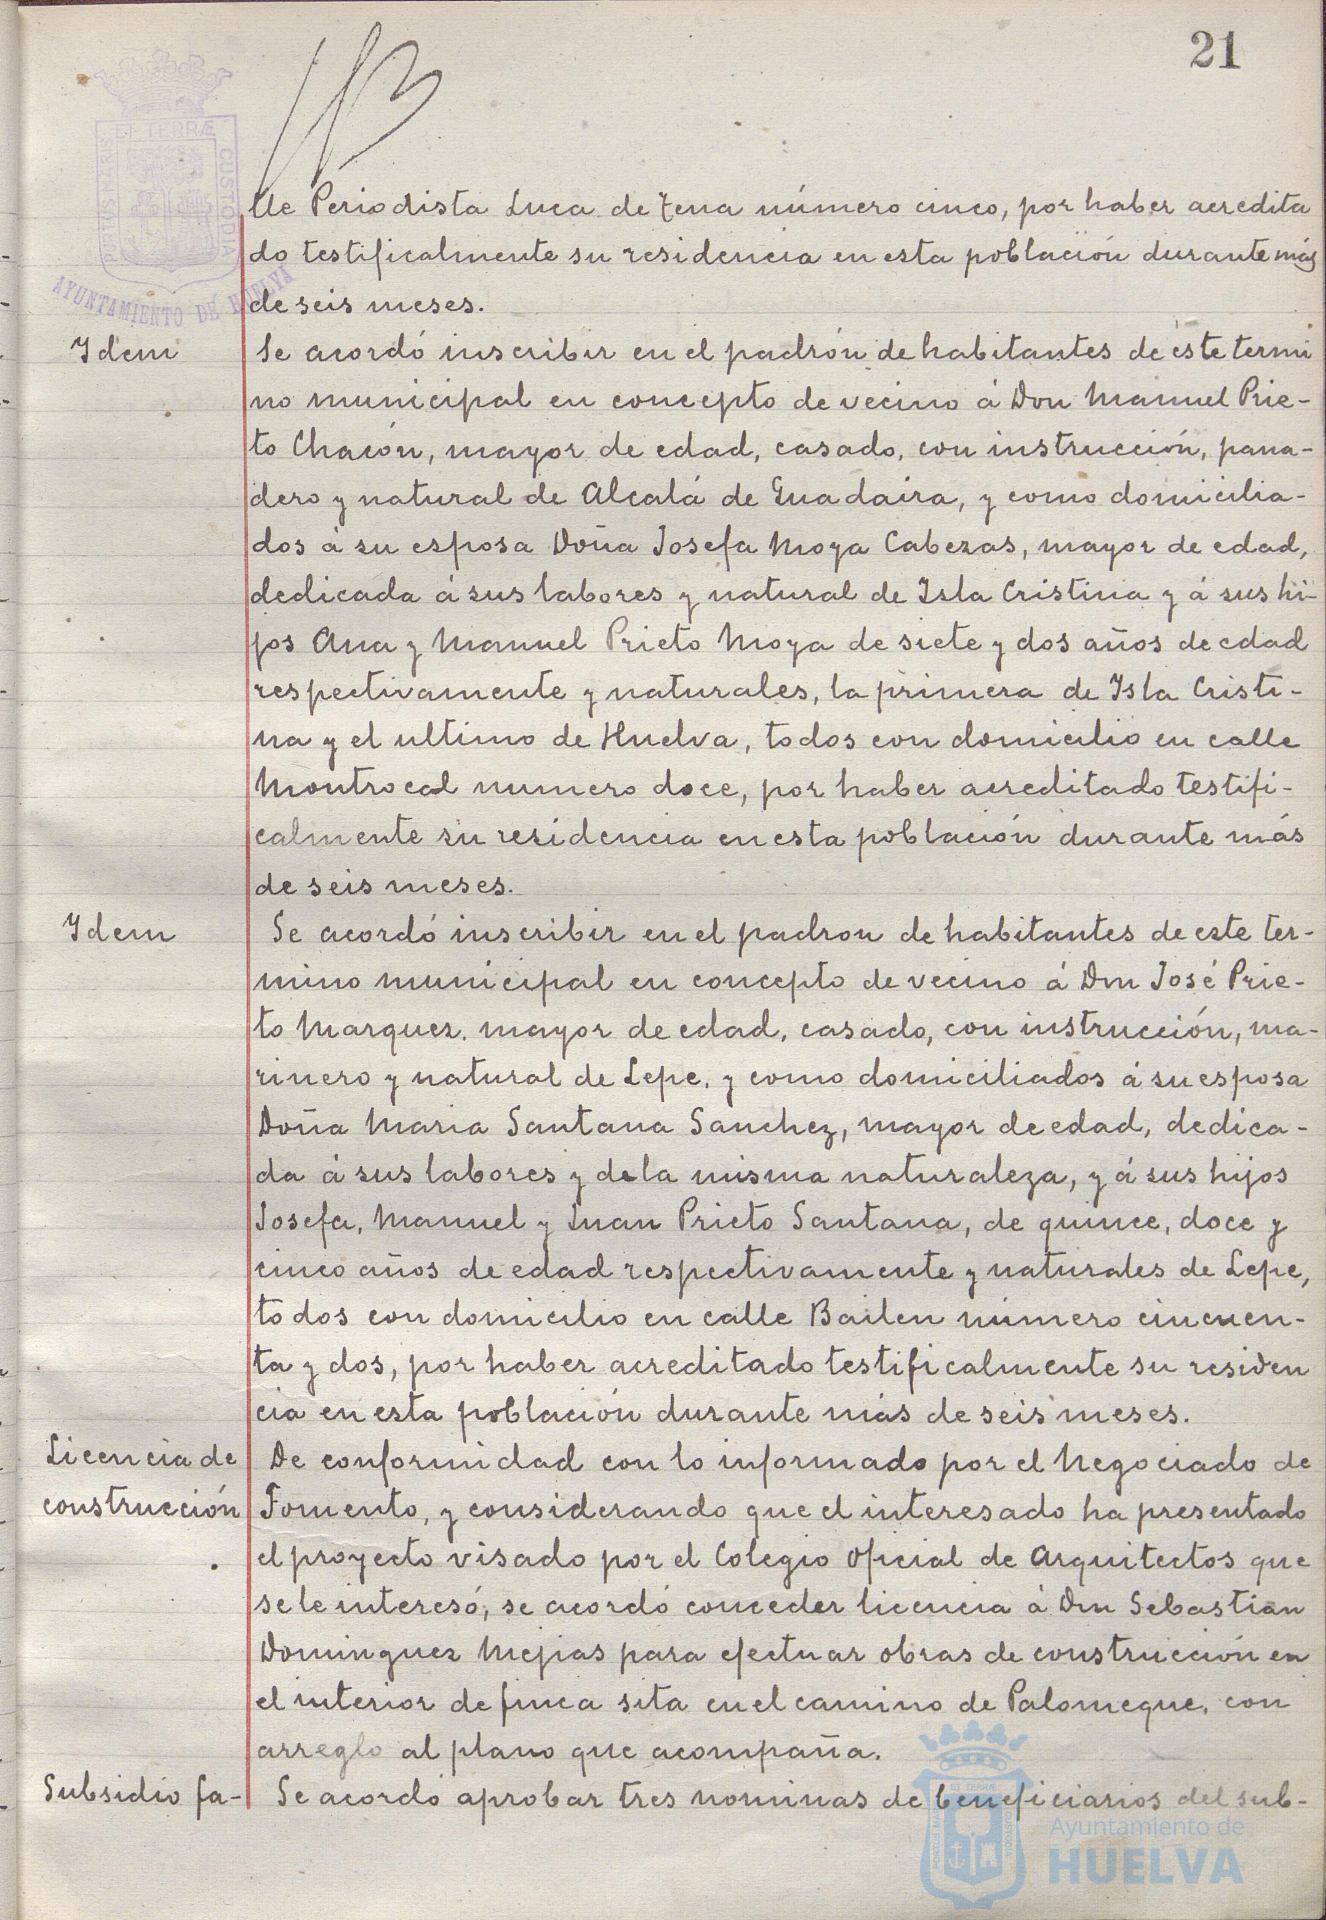 21
PORTUS MARIS ET TERRÆ CUSTODIA
AYUNTAMIENTO DE HUELVA
lle Periodista Luca de Tena número cinco, por haber acredita
do testificalmente su residencia en esta población durante más
de seis meses.
Idem
Se acordó inscribir en el padrón de habitantes de éste termi
no municipal en concepto de vecino á Don Manuel Prie-
to Chacón, mayor de edad, casado, con instrucción, pana-
dero y natural de Alcalá de Guadaira, y como domicilia-
dos á su esposa Doña Josefa Moya Cabezas, mayor de edad,
dedicada á sus labores y natural de Isla Cristina y á sus hi-
jos Ana y Manuel Prieto Moya de siete y dos años de edad
respectivamente y naturales, la primera de Isla Cristi-
na y el ultimo de Huelva, todos con domicilio en calle
Montrocal numero doce, por haber acreditado testifi-
calmente su residencia en esta población durante más
de seis meses.
Idem
Se acordó inscribir en el padron de habitantes de este ter-
mino municipal en concepto de vecino á Don José Prie-
to Marquez. mayor de edad, casado, con instrucción, ma-
rinero y natural de Lepe, y como domiciliados á su esposa
Doña Maria Santana Sanchez, mayor de edad, dedica-
da á sus labores y de la misma naturaleza, y á sus hijos
Josefa, Manuel y Juan Prieto Santana, de quince, doce y
cinco años de edad respectivamente y naturales de Lepe,
todos con domicilio en calle Bailen número cincuen-
ta y dos, por haber acreditado testificalmente su residen
cia en esta población durante más de seis meses.
Licencia de
construcción
De conformidad con lo informado por el Negociado de
Fomento, y considerando que el interesado ha presentado
el proyecto visado por el Colegio Oficial de Arquitectos que
se le interesó, se acordó conceder licencia á Don Sebastian
Dominguez Mejias para efectuar obras de construcción en
el interior de finca sita en el camino de Palomeque, con
arreglo al plano que acompaña.
Subsidio fa-
Se acordó aprobar tres nominas de beneficiarios del sub-
Ayuntamiento de
HUELVA